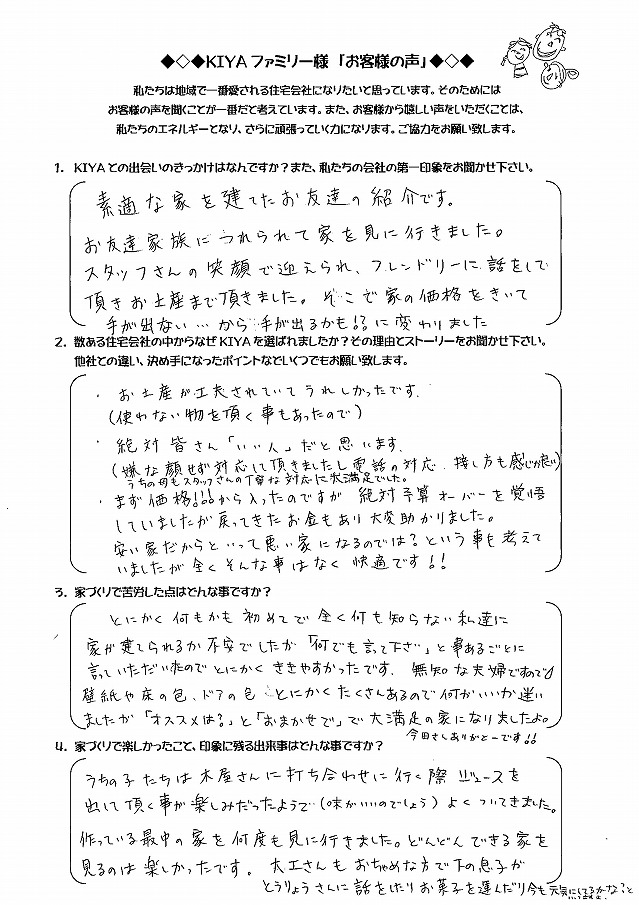 ◆◇◆KIYAファミリー様「お客様の声」◆◇◆
私たちは地域で一番愛される住宅会社になりたいと思っています。そのためには
お客様の声を聞くことが一番だと考えています。また、お客様から嬉しい声をいただくことは、
私たちのエネルギーとなり、さらに頑張っていく力になります。ご協力をお願い致します。
1. KIYAとの出会いのきっかけはなんですか?また、私たちの会社の第一印象をお聞かせ下さい。
素適な家を建てたお友達の紹介です。
お友達家族につれられて家を見に行きました。
スタッフさんの笑顔で迎えられ、フレンドリーに話をして
頂きお土産まで頂きました。そこで家の価格をきいて
手が出ない…から手が出るかも!?に変わりました
2. 数ある住宅会社の中からなぜKIYAを選ばれましたか?その理由とストーリーをお聞かせ下さい。
他社との違い、決め手になったポイントなどいくつでもお願い致します。
・お土産が工夫されていてうれしかったです。
(使わない物を頂く事もあったので)
・絶対皆さん「いい人」だと思います。
(嫌な顔せず対応して頂きましたし電話の対応、接し方も感じが良い)
うちの母もスタッフさんの丁寧な対応に大満足でした。
・まず価格!!!から入ったのですが 絶対予算オーバーを覚悟
していましたが戻ってきたお金もあり大変助かりました。
安い家だからといって悪い家になるのでは?という事も考えて
いましたが全くそんな事はなく快適です!!
3. 家づくりで苦労した点はどんな事ですか?
とにかく何もかも初めてで全く何も知らない私達に
家が建てられるか不安でしたが「何でも言って下さい」と事あるごとに
言っていただいたのでとにかくききやすかったです。無知な夫婦ですので
壁紙や床の色、ドアの色 とにかくたくさんあるので何がいいか迷い
ましたが「オススメは?」と「おまかせで」で大満足の家になりましたよ。
今田さんありがとーです!!
4. 家づくりで楽しかったこと、印象に残る出来事はどんな事ですか?
うちの子たちは木屋さんに打ち合わせに行く際ジュースを
出して頂く事が楽しみだったようで(味がいいのでしょう)よくついてきました。
作っている最中の家を何度も見に行きました。どんどんできる家を
見るのは楽しかったです。大工さんもおちゃめな方で下の息子が
とうりょうさんに話をしたりお菓子を選んだり今も元気にしてるかな?と